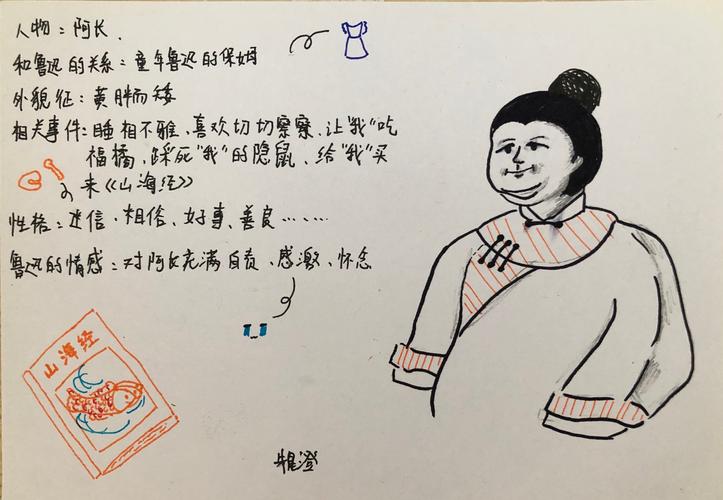 人物：阿长、
和鲁迅的关系：童年鲁迅的保姆
外貌征：黄胖而矮
相关事件：睡相不雅、喜欢切切察察、让"我"吃
福橘、踩死"我"的隐鼠、给"我"买
来《山海经》
性格：迷信、粗俗、好事、善良……
鲁迅的情感：对阿长充满自责、感激、怀念
山海经
澄